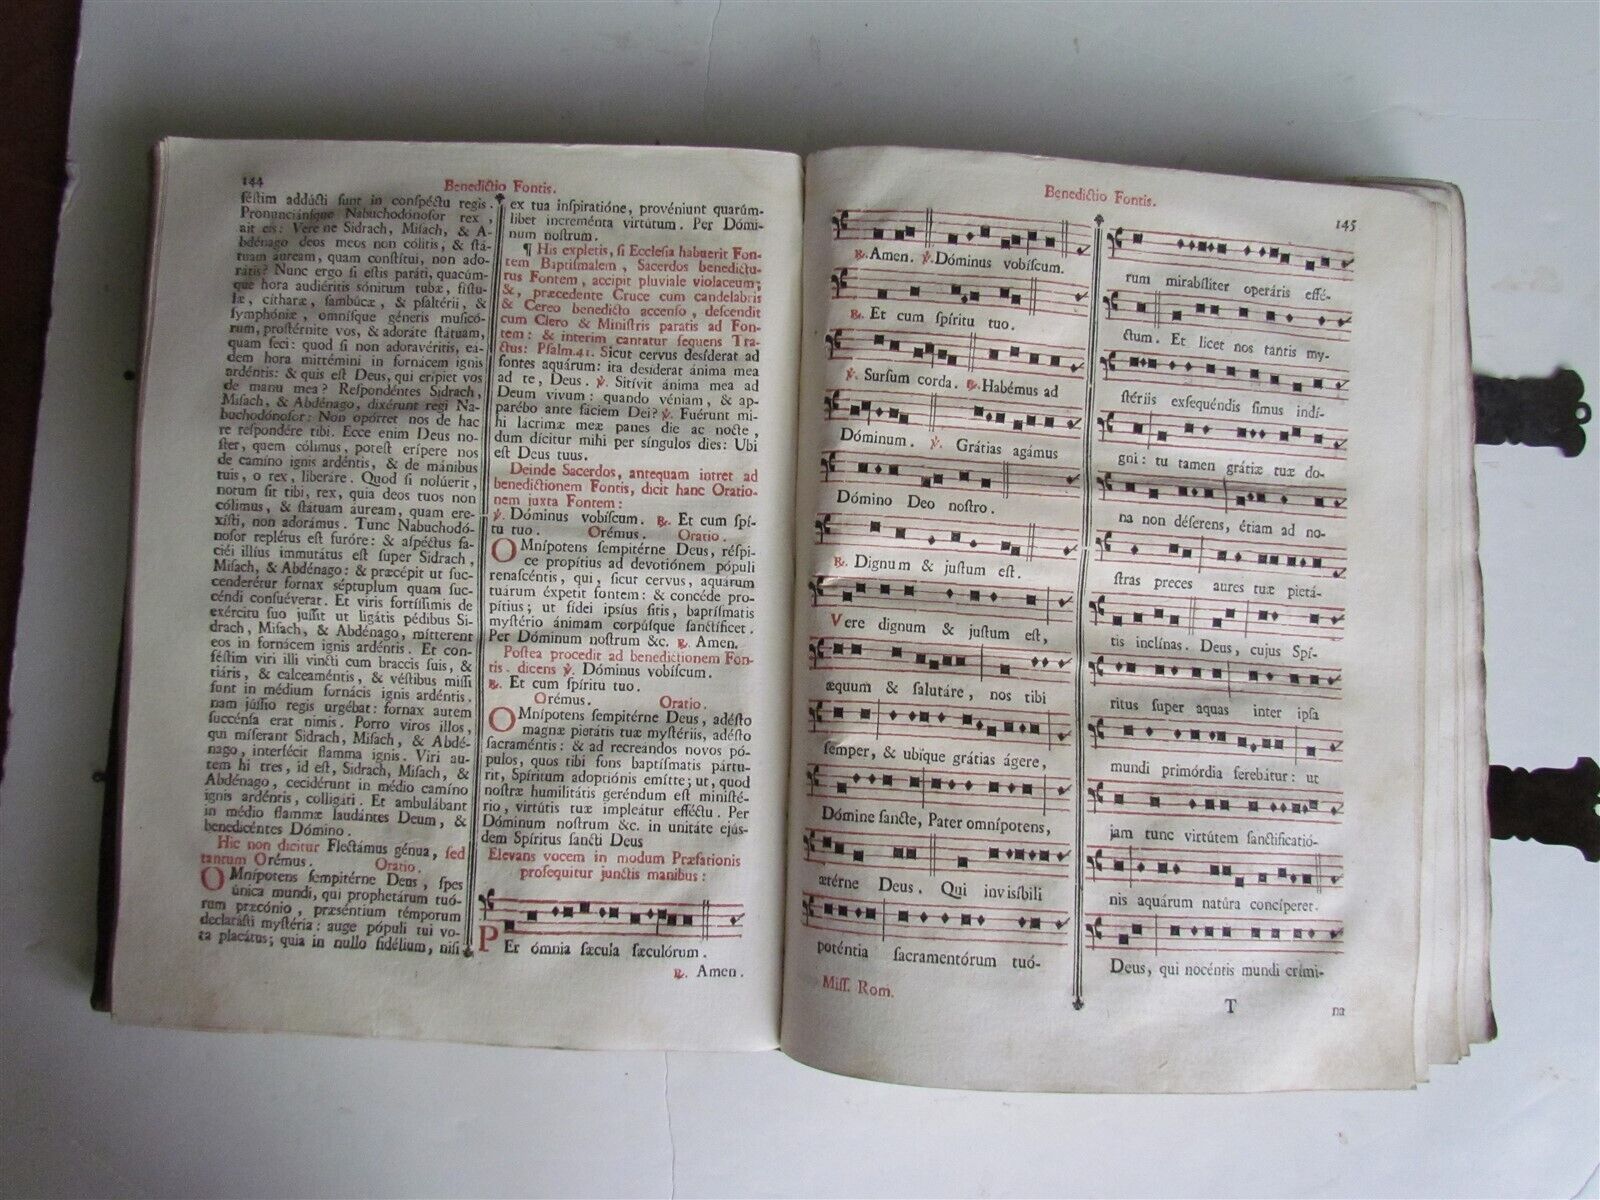 144
Benedictio Fontis.
féſtim addúcti ſunt in conſpéctu regis.
Pronunciánſque Nabuchodónoſor rex,
ait eis: Vere ne Sidrach, Miſach, & A-
bdénago deos meos non cólitis, & ſtá-
tuam áuream, quam conſtítui, non ado-
rátis? Nunc ergo ſi eſtis paráti, quacúm-
que hora audiéritis sónitum tubæ, fiſtu-
læ, cítharæ, ſambúcæ, & pſaltérii, &
ſymphóniæ, omniſque géneris muſicó-
rum, proſtérnite vos, & adoráte ſtátuam,
quam feci: quod ſi non adoravéritis, ea-
dem hora mittémini in fornácem ignis
ardéntis: & quis eſt Deus, qui erípiet vos
de manu mea? Reſpondéntes Sidrach,
Miſach, & Abdénago, dixérunt regi Na-
buchodónoſor: Non opórtet nos de hac
re reſpondére tibi. Ecce enim Deus no-
ſter, quem cólimus, poteſt erípere nos
de camíno ignis ardéntis, & de mánibus
tuis, o rex, liberáre. Quod ſi nolúerit,
notum ſit tibi, rex, quia deos tuos non
cólimus, & ſtátuam áuream, quam ere-
xíſti, non adorámus. Tunc Nabuchodó-
noſor replétus eſt furóre: & aſpéctus fa-
ciéi illíus immutátus eſt ſuper Sidrach,
Miſach, & Abdénago: & præcépit ut ſuc-
cenderétur fornax séptuplum quam ſuc-
céndi conſuéverat. Et viris fortíſſimis de
exércitu ſuo juſſit ut ligátis pédibus Si-
drach, Miſach, & Abdénago, mítterent
eos in fornácem ignis ardéntis. Et con-
féſtim viri illi vincti cum braccis ſuis, &
tiáris, & calceaméntis, & véſtibus miſſi
ſunt in médium fornácis ignis ardéntis.
nam júſſio regis urgébat: fornax autem
ſuccénſa erat nimis. Porro viros illos,
qui míſerant Sidrach, Miſach, & Abdé-
nago, interfécit flamma ignis. Viri au-
tem hi tres, id eſt, Sidrach, Miſach, &
Abdénago, cecidérunt in médio camíno
ignis ardéntis, colligáti. Et ambulábant
in médio flammæ laudántes Deum, &
benedicéntes Dómino.
Hic non dicitur Flectámus génua, ſed
tantum Orémus. Oratio.
OMnípotens ſempitérne Deus, ſpes
única mundi, qui prophetárum tuó-
rum præcónio, præséntium témporum
declaráſti myſtéria: auge pópuli tui vo-
ta placátus; quia in nullo fidélium, niſi
ex tua inſpiratióne, provéniunt quarúm-
libet increménta virtútum. Per Dómi-
num noſtrum.
¶ His expletis, ſi Eccleſia habuerit Fon-
tem Baptiſmalem, Sacerdos benedictu-
rus Fontem, accipit pluviale violaceum;
&, præcedente Cruce cum candelabris
& Cereo benedicto accenſo, deſcendit
cum Clero & Miniſtris paratis ad Fon-
tem: & interim cantatur ſequens Tra-
ctus: Pſalm. 41. Sicut cervus desíderat ad
fontes aquárum: ita desíderat ánima mea
ad te, Deus. ℣. Sitívit ánima mea ad
Deum vivum: quando véniam, & ap-
parébo ante fáciem Dei? ℣. Fuérunt mi-
hi lácrimæ meæ panes die ac nocte,
dum dícitur mihi per síngulos dies: Ubi
eſt Deus tuus.
Deinde Sacerdos, antequam intret ad
benedictionem Fontis, dicit hanc Oratio-
nem juxta Fontem:
℣. Dóminus vobíſcum. ℟. Et cum ſpí-
tu tuo. Orémus. Oratio.
OMnípotens ſempitérne Deus, réſpi-
ce propítius ad devotiónem pópuli
renaſcéntis, qui, ſicut cervus, aquárum
tuárum éxpetit fontem: & concéde pro-
pítius; ut fídei ipsíus ſitis, baptíſmatis
myſtério ánimam corpúſque ſanctíficet.
Per Dóminum noſtrum &c. ℟. Amen.
Poſtea procedit ad benedictionem Fon-
tis, dicens ℣. Dóminus vobíſcum.
℟. Et cum ſpíritu tuo.
Orémus. Oratio.
OMnípotens ſempitérne Deus, adéſto
magnæ pietátis tuæ myſtériis, adéſto
ſacraméntis: & ad recreándos novos pó-
pulos, quos tibi fons baptíſmatis pártu-
rit, Spíritum adoptiónis emítte; ut, quod
noſtræ humilitátis geréndum eſt miniſté-
rio, virtútis tuæ impleátur efféctu. Per
Dóminum noſtrum &c. in unitáte ejús-
dem Spíritus ſancti Deus
Elevans vocem in modum Præfationis
proſequitur junctis manibus:
PEr ómnia ſæcula ſæculórum.
℟. Amen.
Benedictio Fontis.
145
℟. Amen. ℣. Dóminus vobíſcum.
℟. Et cum ſpíritu tuo.
℣. Surſum corda. ℟. Habémus ad
Dóminum. ℣. Grátias agámus
Dómino Deo noſtro.
℟. Dignum & juſtum eſt.
Vere dignum & juſtum eſt,
æquum & ſalutáre, nos tibi
ſemper, & ubíque grátias ágere,
Dómine ſancte, Pater omnípotens,
ætérne Deus. Qui inviſíbili
poténtia ſacramentórum tuó-
Miſſ. Rom.
rum mirabíliter operáris effé-
ctum. Et licet nos tantis my-
ſtériis exſequéndis ſimus indí-
gni: tu tamen grátiæ tuæ do-
na non déſerens, étiam ad no-
ſtras preces aures tuæ pietá-
tis inclínas. Deus, cujus Spí-
ritus ſuper aquas inter ipſa
mundi primórdia ferebátur: ut
jam tunc virtútem ſanctificatió-
nis aquárum natúra concíperet.
Deus, qui nocéntis mundi crími-
T
na